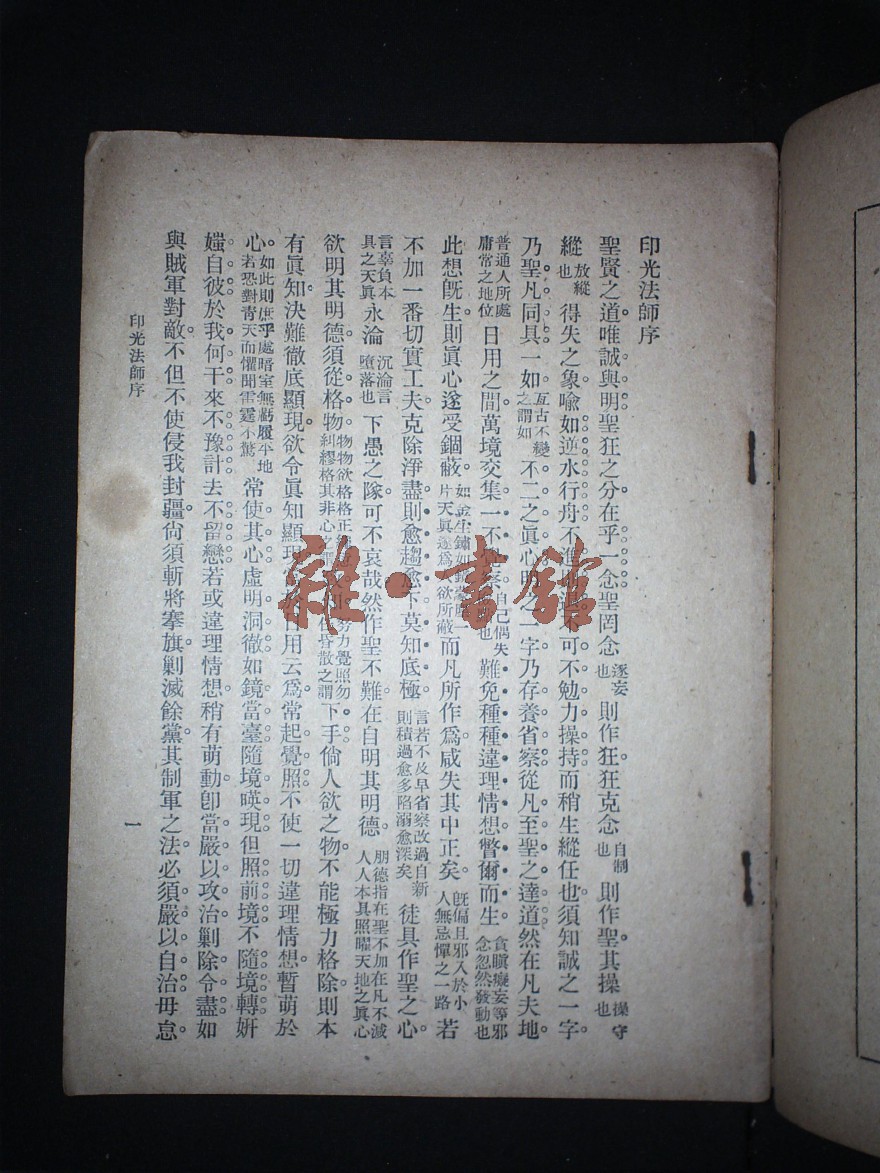 印光法師序
聖賢之道唯誠與明聖狂之分在乎一念聖罔念逐妄也則作狂狂克念自制也則作聖其操操守也
縱放縱也得失之象喩如逆水行舟不進則退不可不勉力操持而稍生縱任也須知誠之一字
乃聖凡同具一如亙古不變之謂如不二之眞心明之一字乃存養省察從凡至聖之達道然在凡夫地
普通人所處庸常之地位日用之間萬境交集一不覺察自己偶失也難免種種違理情想瞥爾而生貪瞋癡妄等邪念忽然發動也
此想旣生則眞心遂受錮蔽片天眞遂爲人欲所蔽而凡所作爲咸失其中正矣旣偏且邪入於小人無忌憚之一路若
不加一番切實工夫克除淨盡則愈趨愈下莫知底極言若不及早省察改過自新則積過愈多陷溺愈深矣徒具作聖之心
言辜負本具之天眞永淪沉淪言墮落也下愚之隊可不哀哉然作聖不難在自明其明德明德指在聖不加在凡不滅人人本具照曜天地之眞心
欲明其明德須從格物物物欲格格正糾繆格其非心之謂下手倘人欲之物不能極力格除則本
有眞知決難徹底顯現欲令眞知顯現當於日用云爲常起覺照不使一切違理情想暫萌於
心如此則庶乎處暗室無虧履平地若恐對靑天而懼聞雷霆不驚常使其心虛明洞徹如鏡當臺隨境暎現但照前境不隨境轉姸
媸自彼於我何干來不豫計去不留戀若或違理情想稍有萌動卽當嚴以攻治剿除令盡如
與賊軍對敵不但不使侵我封疆尙須斬將搴旗剿滅餘黨其制軍之法必須嚴以自治毋怠
印光法師序
一
雜·書館